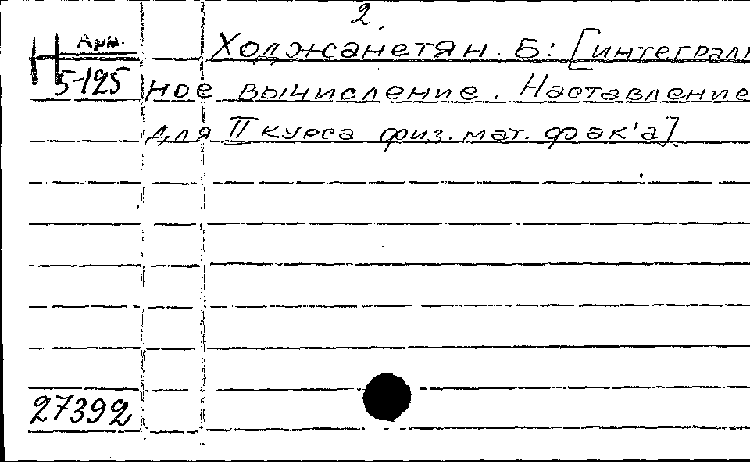 2.
Арм. Ходжсанетян. Б: [интеграль
Н 5-125 ное вычисление. Наставление
для II курса физ. мат. фак'а]
27392